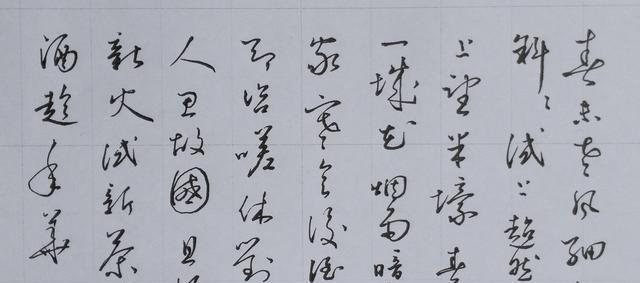 春未老风细
斜〻试上超然
上望半壕春
一城花烟雨暗
家寒食后酒
却咨嗟休對
人思故國且
新火试新茶
酒趁年華